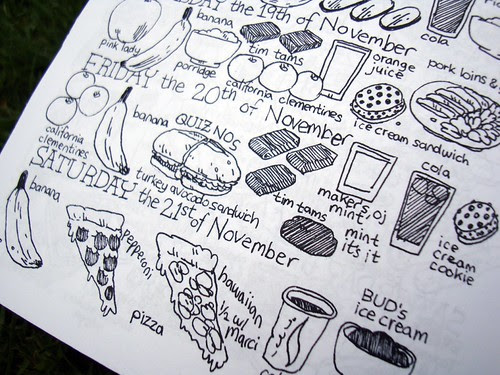 DAY the 19th of November
pink lady
banana
porridge
tim tams
california clementines
orange
juice
cola
ice cream sandwich
pork loins &
FRIDAY the 20th of November
california
clementines
banana
QUIZNOS
turkey avocado sandwich
tim tams
makers, oj
mint
mint
it's it
cola
ice
cream
cookie
SATURDAY the 21st of November
banana
pepperoni
pizza
hawaiian
1/2 w/
marci
BUD's
ice cream